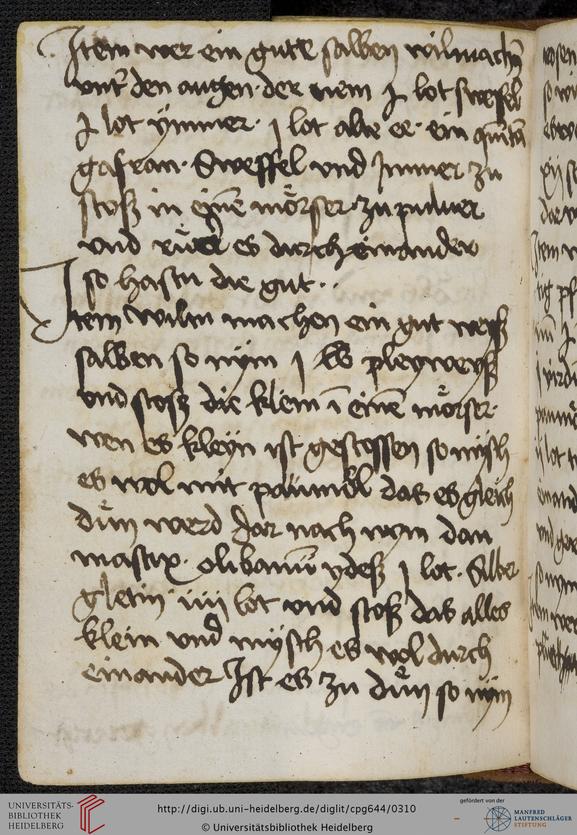 Item wer ein gute salben wil mach̄
vnt̕ den augen · der nem j lot swefel
j lot ymmer · j lot alte ee · ein
gafran · Sweffel vnd Jmmer zu
stosß in eine͂ mörser zu puluer
vnd rüer es durch einander
so hastu die gut ·
Item wiltu machen ein gut weysß
salben so nÿm j lb pleyweysß
vnd stosß die klein ī eine͂ mörser ·
wen es kleÿn ist gestossen so misch
es wol mit paumöl das es gleich
dün̄ werd dar nach nym dan
mastix · olibanū ydesß j lot · Silber
gletin · iiii lot vnd stosß das alles
klein vnd mÿsch es wol durch
einander Ist es zu dün̄ so nÿm
UNIVERSITÄTS-
BIBLIOTHEK
HEIDELBERG
http://digi.ub.uni-heidelberg.de/diglit/cpg644/0310
© Universitätsbibliothek Heidelberg
gefördert von der
MANFRED
LAUTENSCHLÄGER
STIFTUNG